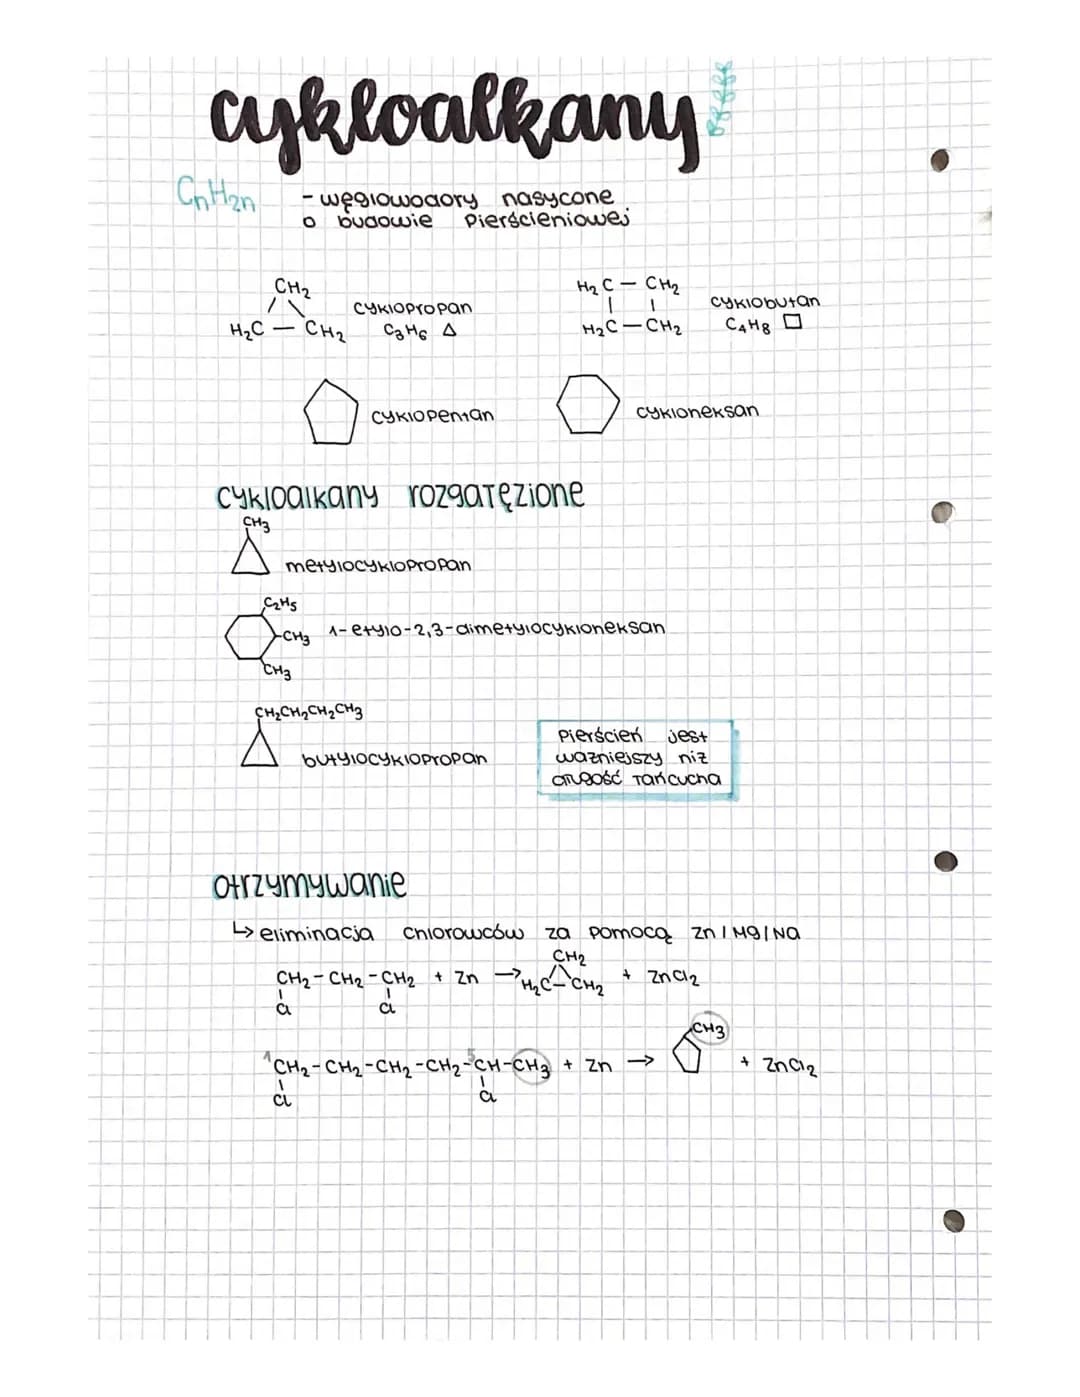 cykloalkany
CnH2n
- węglowodory nasycone
o budowie pierścieniowej
CH2
H2C — CH2
cyklopropan
C3H6 △
H2C — CH2
H2C — CH2
cyklobutan
C4H8 □
cyklopentan
cykloheksan
cykloalkany rozgałęzione
CH3
metylocyklopropan
C2H5
CH3
CH3
1-etylo-2,3-dimetylocykloheksan
CH2CH2CH2CH3
butylocyklopropan
Pierścień jest
ważniejszy niż
długość łańcucha
otrzymywanie
↳ eliminacja chlorowców za pomocą Zn/Mg/Na
CH2
CH2 - CH2 - CH2 + Zn → H2C — CH2 + ZnCl2
Cl Cl
CH3
1 5
CH2 - CH2 - CH2 - CH2 - CH - CH3 + Zn → + ZnCl2
Cl Cl